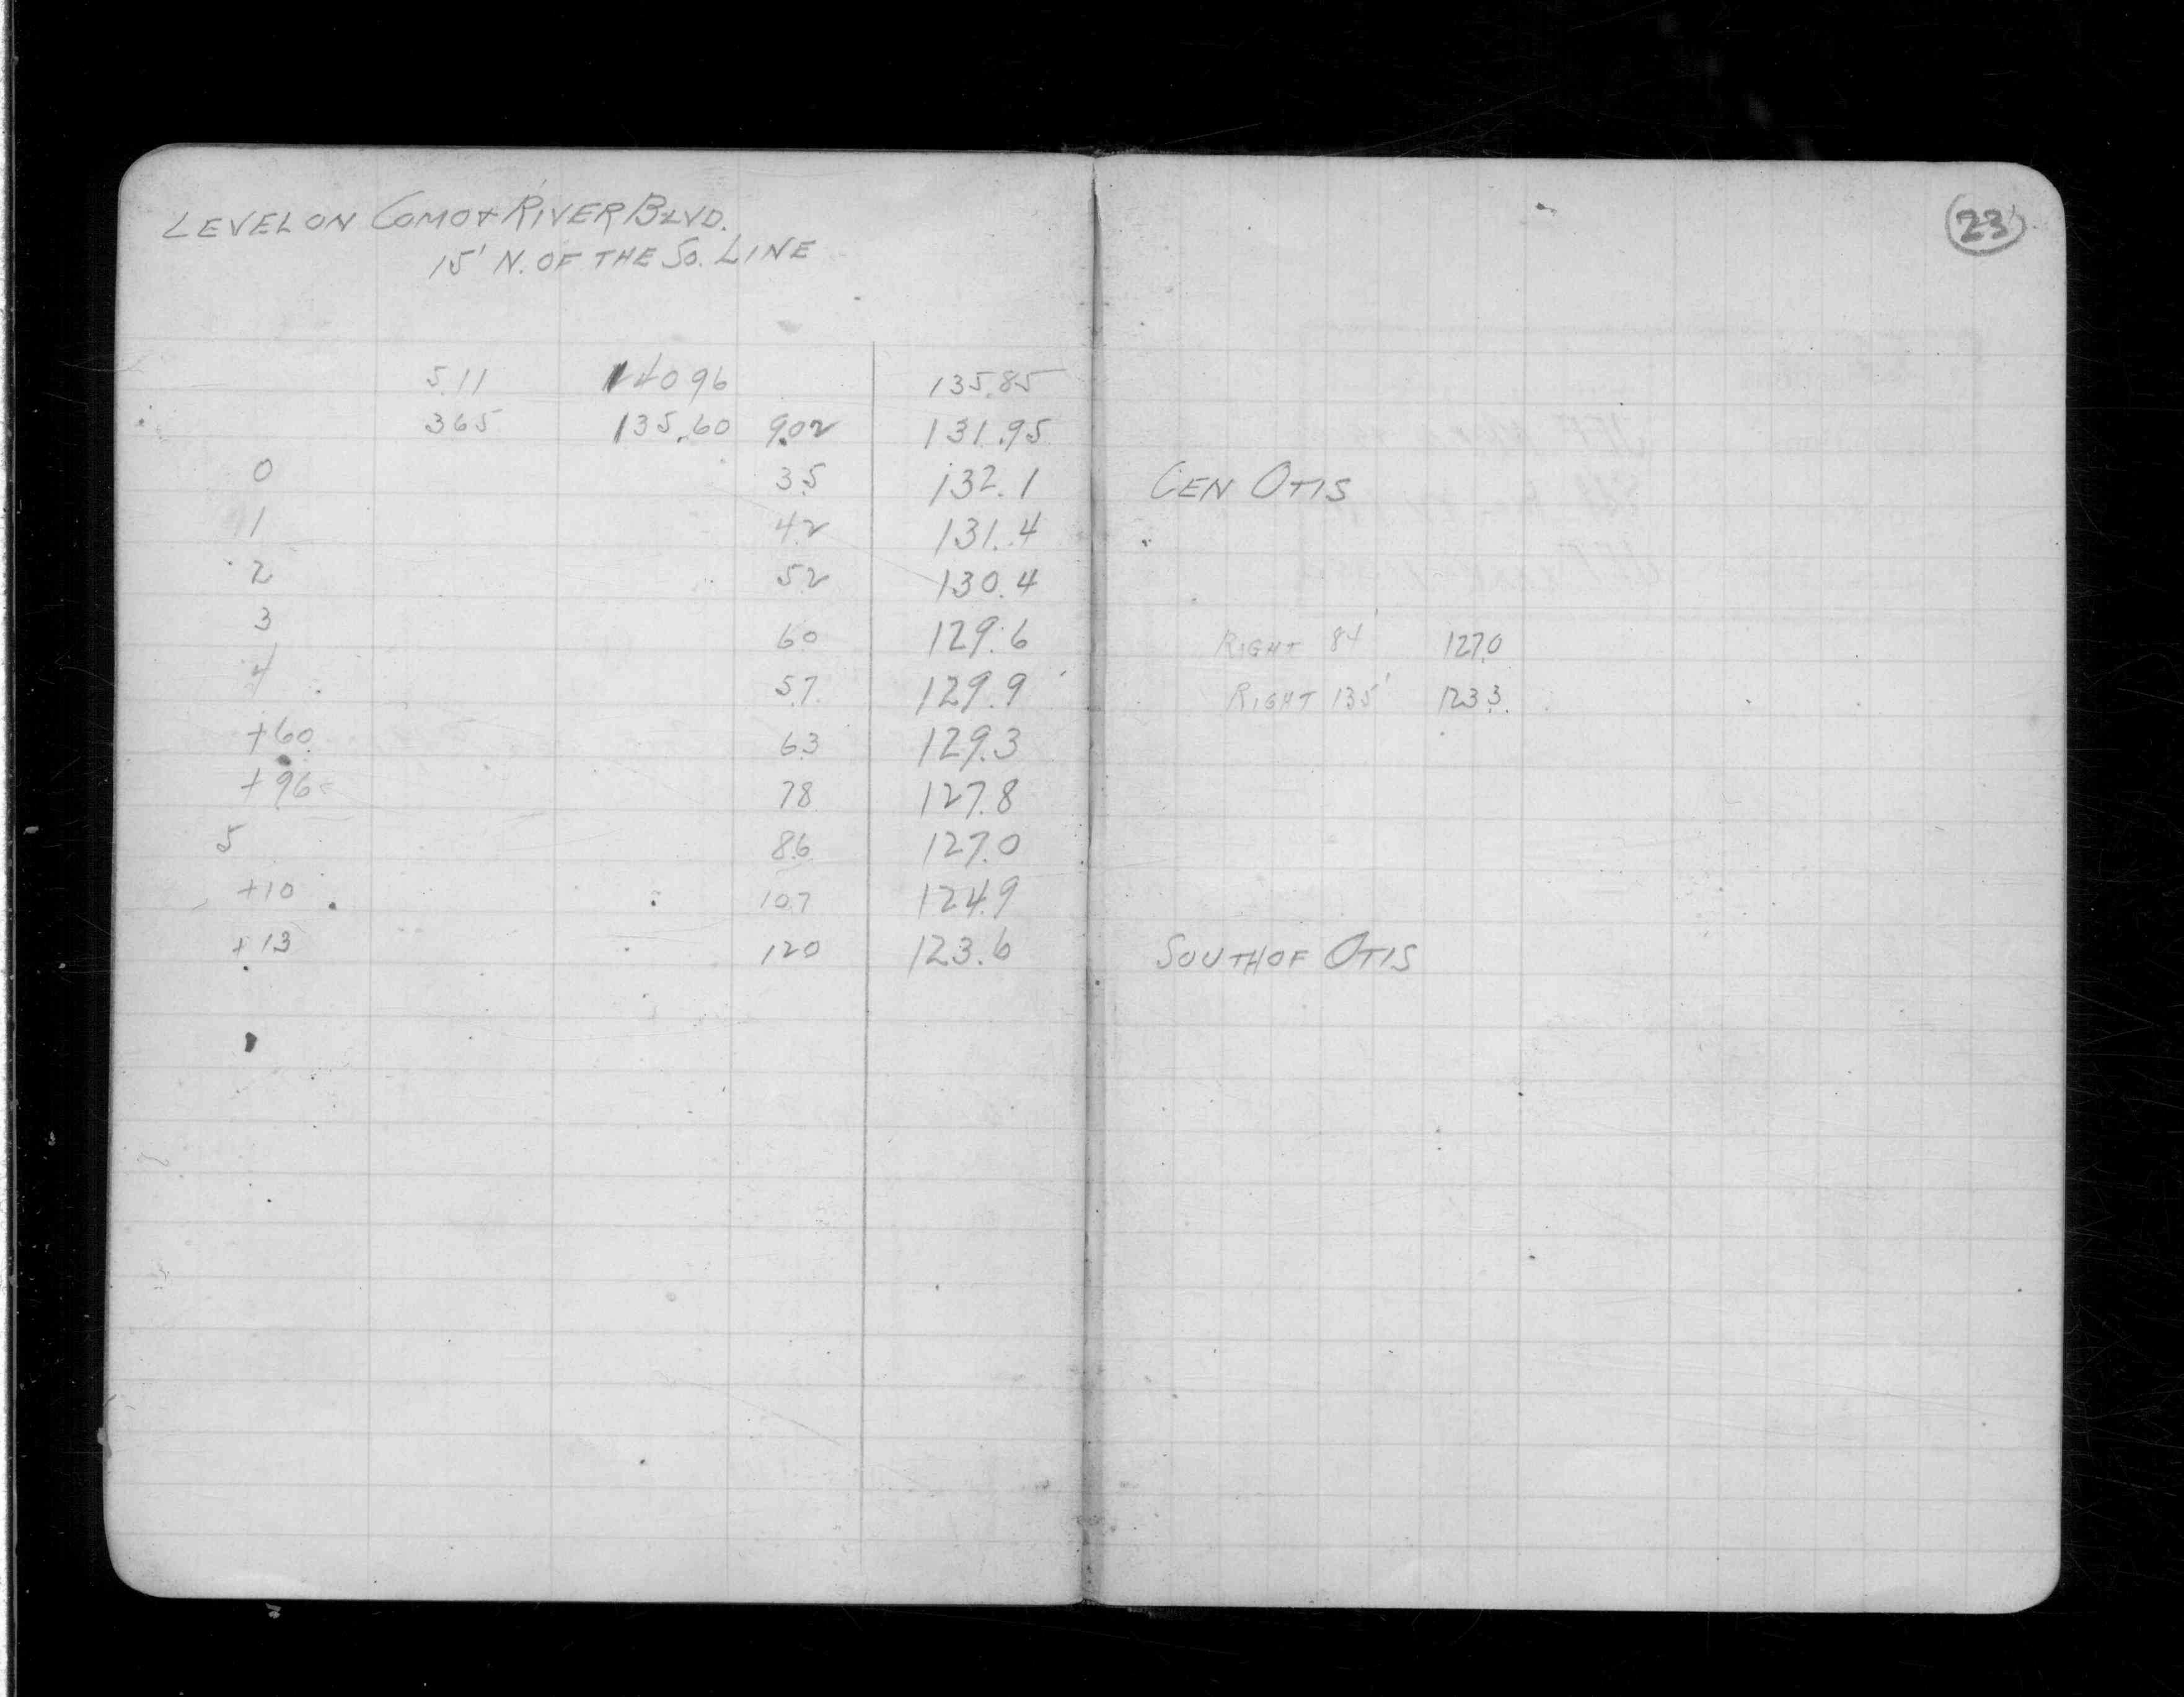 LEVEL ON COMO & RIVER BLVD.
15' N. OF THE SO. LINE
23
5.11 140 96 135.85
365 135.60 9.02 131.95
0 3.5 132.1 CEN OTIS
1 4.2 131.4
2 5.2 130.4
3 60 129.6 RIGHT 84' 127.0
4 5.7 129.9 RIGHT 135' 123.3
+60 6.3 129.3
+96 78 127.8
5 8.6 127.0
+10 10.7 124.9
+13 120 123.6 SOUTH OF OTIS